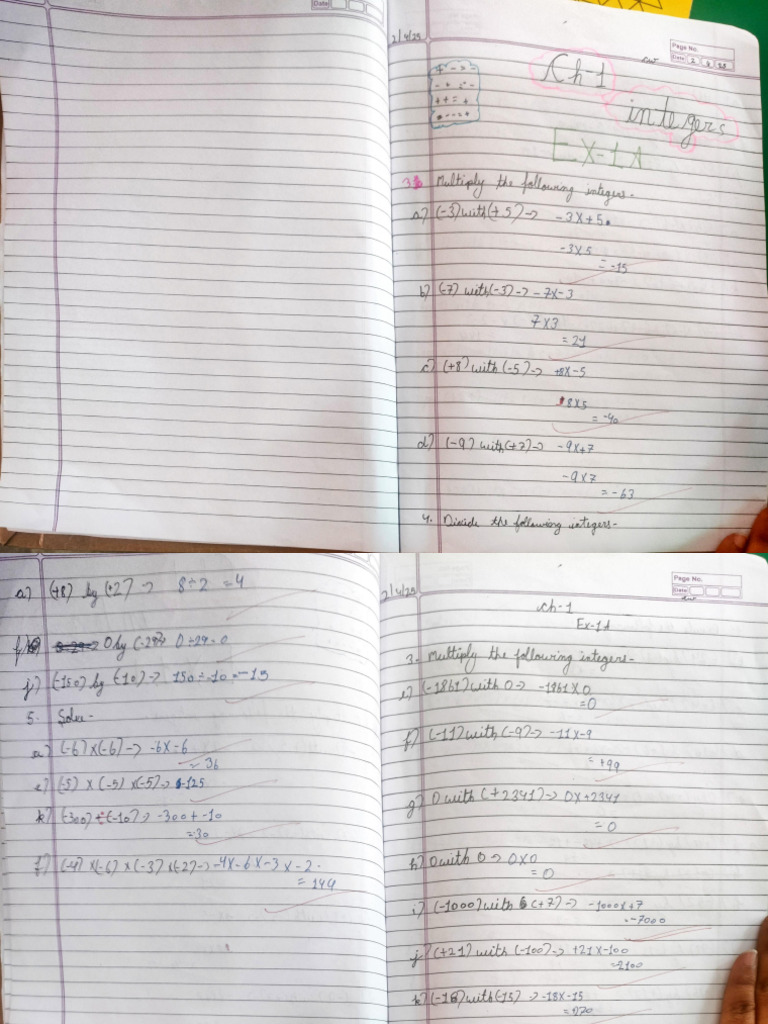 Date
2/4/25
Page No.
Date 2 4 25
cw
+ - > -
- + = -
+ + = +
- - = +
Ch-1
integers
EX-1A
3. Multiply the following integers-
a) (-3) with (+5) -> -3X+5
-3X5
= -15
b) (-7) with (-3) -> -7X-3
7X3
= 21
c) (+8) with (-5) -> +8X-5
8X5
= -40
d) (-9) with (+7) -> -9X+7
-9X7
= -63
4. Divide the following integers-
a) (+8) by (+2) -> 8÷2 = 4
0 by (-29) 0÷29=0
j) (-150) by (-10) -> 150÷-10=-15
5. Solve-
a) (-6) X (-6) -> -6X-6
= 36
e) (-5) X (-5) X (-5) -> -125
k) (-300) ÷ (-10) -> -300÷-10
=30
f) (-4) X (-6) X (-3) X (-2) -> -4X-6X-3X-2
= 144
2/4/25
Page No.
Date
cw
Ch-1
Ex-1A
3. Multiply the following integers-
e) (-1861) with 0 -> -1861X0
=0
f) (-11) with (-9) -> -11X-9
= +99
g) 0 with (+2341) -> 0X+2341
= 0
h) 0 with 0 -> 0X0
= 0
i) (-1000) with (+7) -> -1000X+7
=-7000
j) (+21) with (-100) -> +21X-100
=-2100
k) (-18) with (-15) -> -18X-15